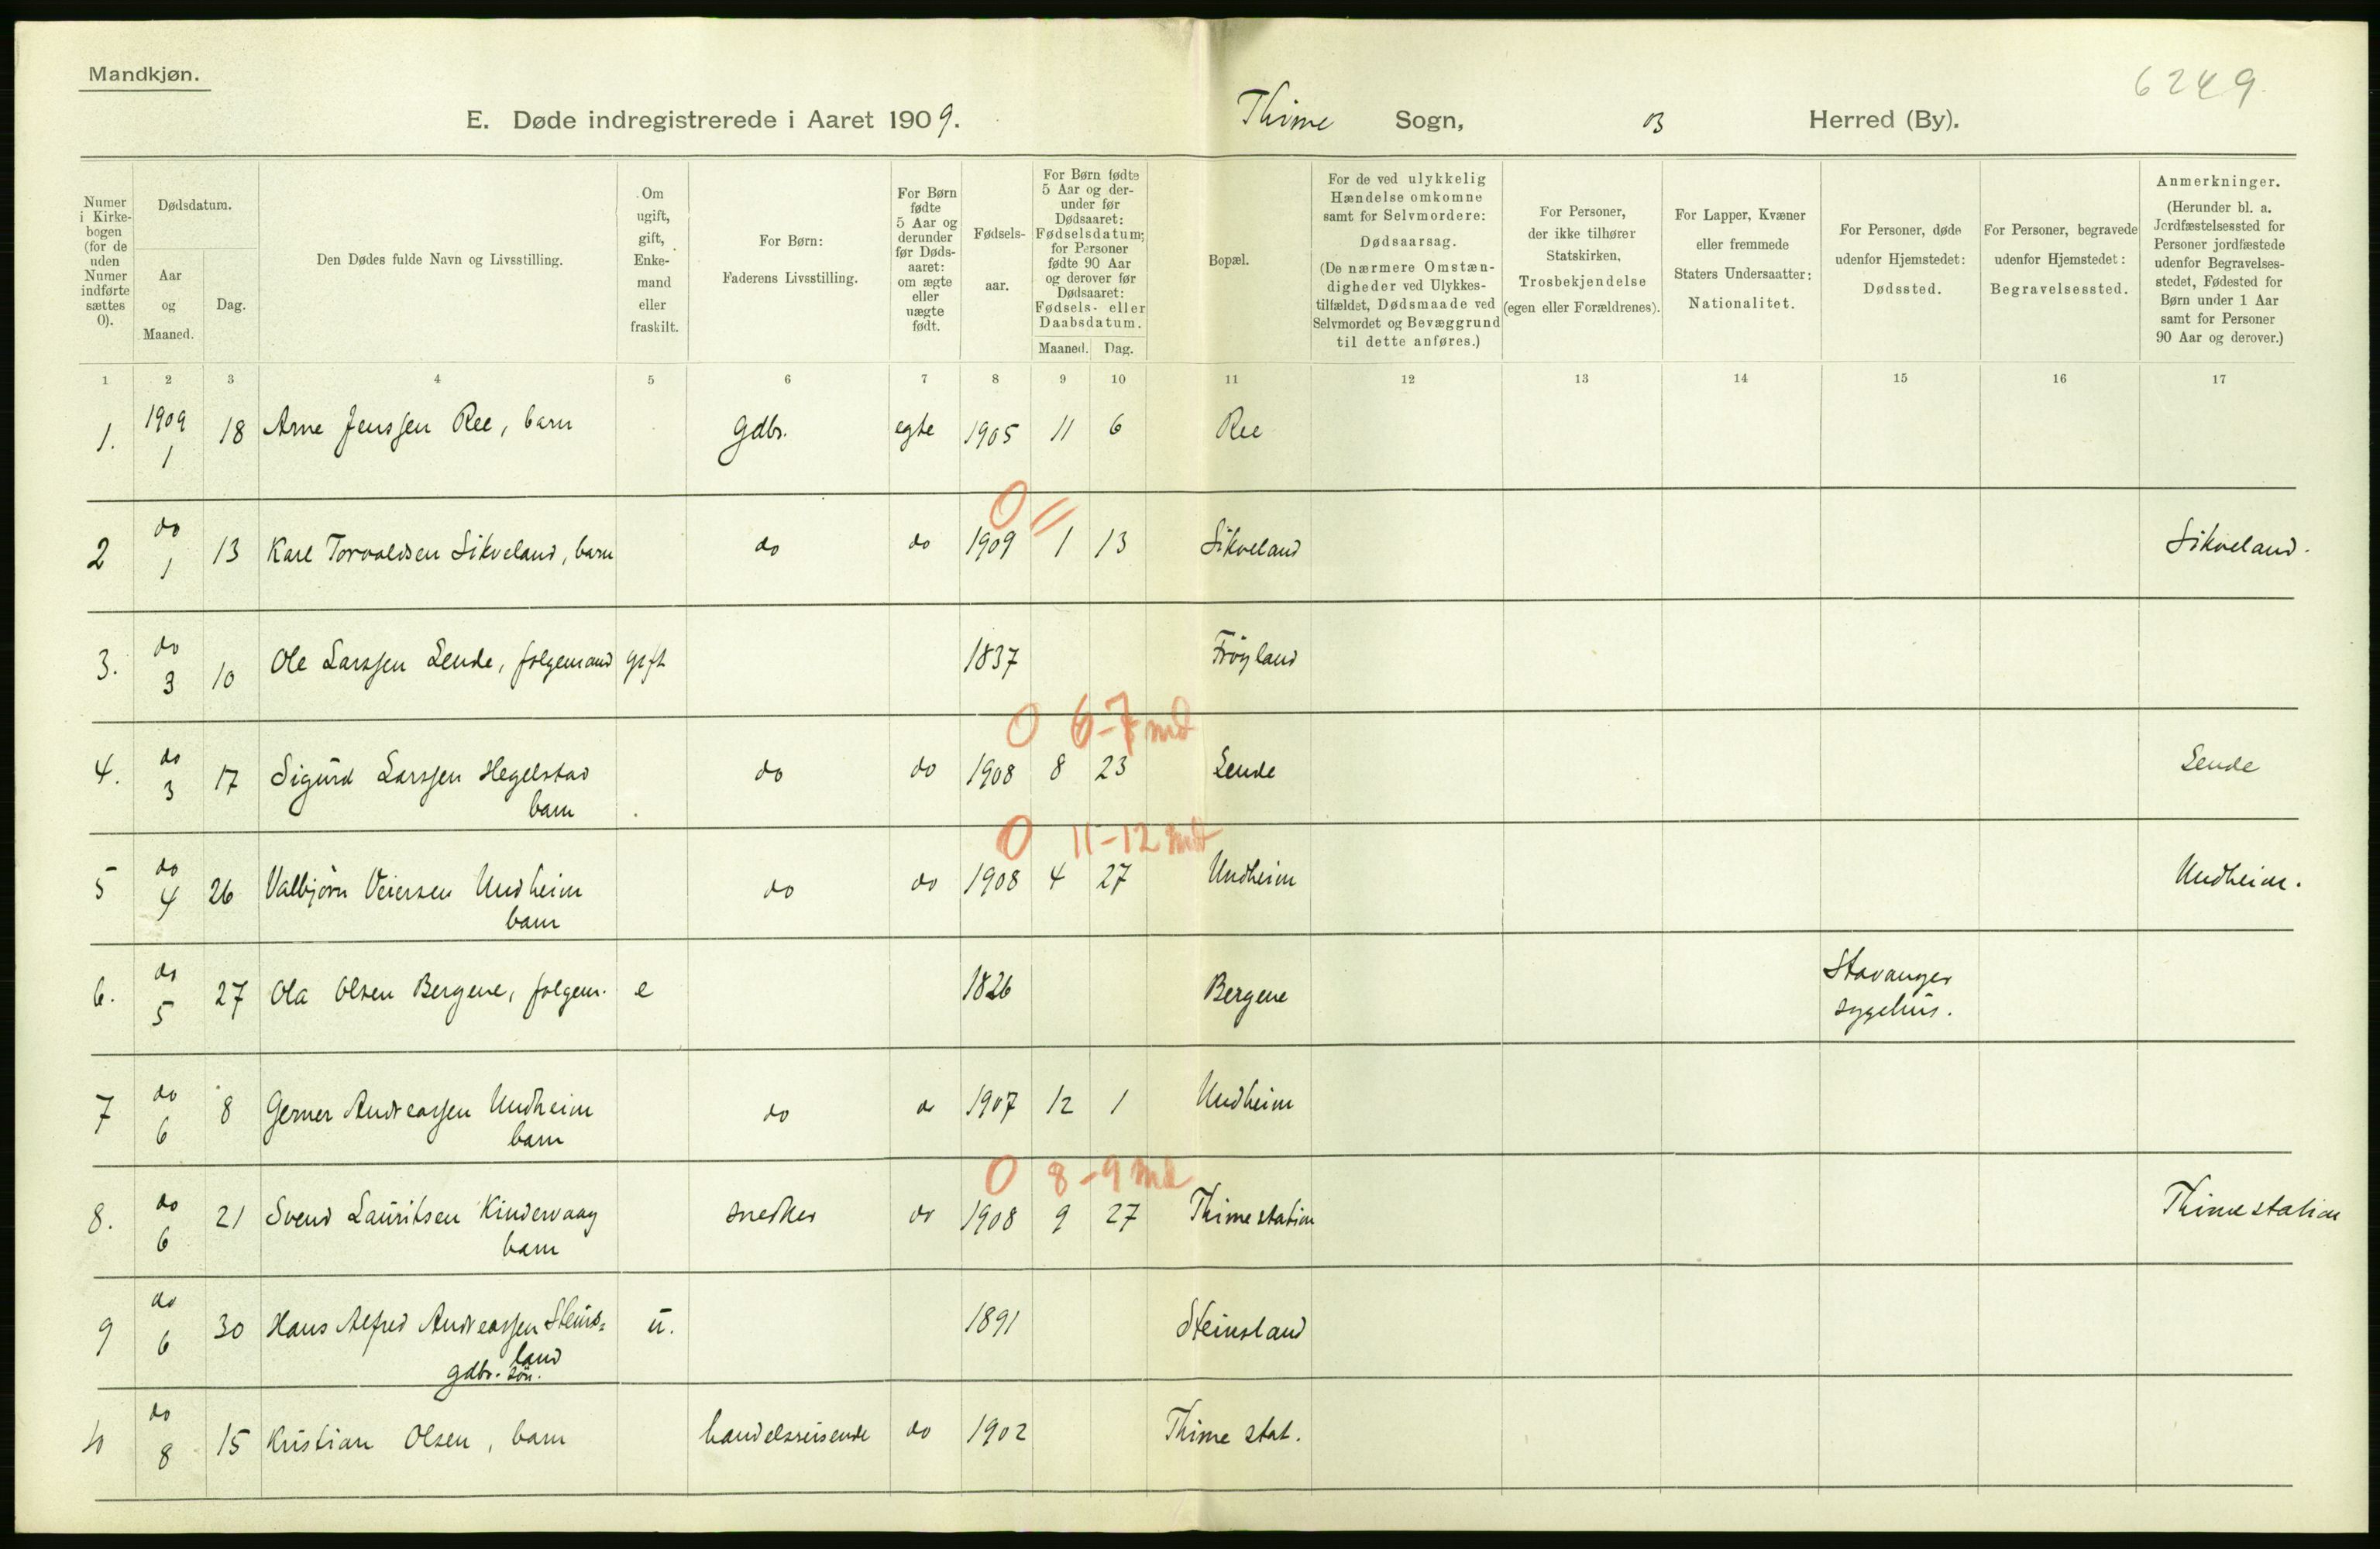 Mandkjøn.
6249.
E. Døde indregistrerede i Aaret 1909. Thime Sogn, Herred (By).
Numer i Kirke-bogen (for de uden Numer indførte sættes 0).
Dødsdatum.
Aar og Maaned.
Dag.
Den Dødes fulde Navn og Livsstilling.
Om ugift, gift, Enke-mand eller fraskilt.
For Børn: Faderens Livsstilling.
For Børn fødte 5 Aar og derunder før Døds-aaret: om ægte eller uægte født.
Fødsels-aar.
For Børn fødte 5 Aar og der-under før Dødsaaret: Fødselsdatum; for Personer fødte 90 Aar og derover før Dødsaaret: Fødsels- eller Daabsdatum.
Maaned. Dag.
Bopæl.
For de ved ulykkelig Hændelse omkomne samt for Selvmordere: Dødsaarsag. (De nærmere Omstæn-digheder ved Ulykkes-tilfældet, Dødsmaade ved Selvmordet og Bevæggrund til dette anføres.)
For Personer, der ikke tilhører Statskirken, Trosbekjendelse (egen eller Forældrenes).
For Lapper, Kvæner eller fremmede Staters Undersaatter: Nationalitet.
For Personer, døde udenfor Hjemstedet: Dødssted.
For Personer, begravede udenfor Hjemstedet: Begravelsessted.
Anmerkninger. (Herunder bl. a. Jordfæstelsessted for Personer jordfæstede udenfor Begravelses-stedet, Fødested for Børn under 1 Aar samt for Personer 90 Aar og derover.)
1 2 3 4 5 6 7 8 9 10 11 12 13 14 15 16 17
1. 1909 1 18 Arne Jenssen Ree, barn gdbr. egte 1905 11 6 Ree
0 11
2 do 1 13 Karl Torvaldsen Sikveland, barn do do 1909 1 13 Sikveland Sikveland.
3. do 3 10 Ole Larssen Lende, folgemand gift 1837 Frøyland
0 6-7 md
4. do 3 17 Sigurd Larssen Hegelstad do do 1908 8 23 Lende Lende
barn
0 11-12 md
5 do 4 26 Valbjörn Veiersen Undheim do do 1908 4 27 Undheim Undheim.
barn
6. do 5 27 Ola Olsen Bergene, folgem. e 1826 Bergene Stavanger
sygehus.
7 do 6 8 Gerner Andreassen Undheim do do 1907 12 1 Undheim
barn
0 8-9 md
8. do 6 21 Svend Lauritsen Kindervaag snedker do 1908 9 27 Thime station Thime station
barn
9 do 6 30 Hans Alfred Andreassen Steins= u. 1891 Steinsland
land
gdbr. søn.
10 do 8 15 Kristian Olsen, barn handelsreisende do 1902 Thime stat.